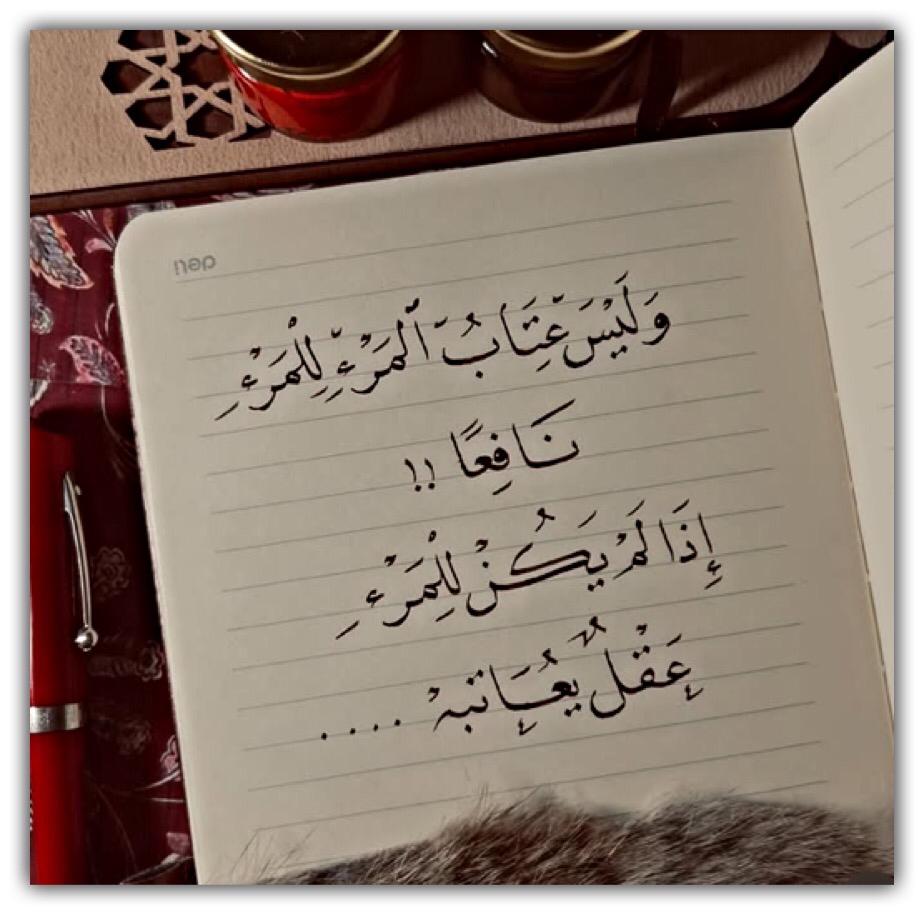 deli
وَلَيْسَ عِتَابُ ٱلمَرْءِ لِلْمَرْءِ
نَافِعًا !!
إِذَا لَمْ يَكُنْ لِلْمَرْءِ
عَقْلٌ يُعَاتبہْ ....